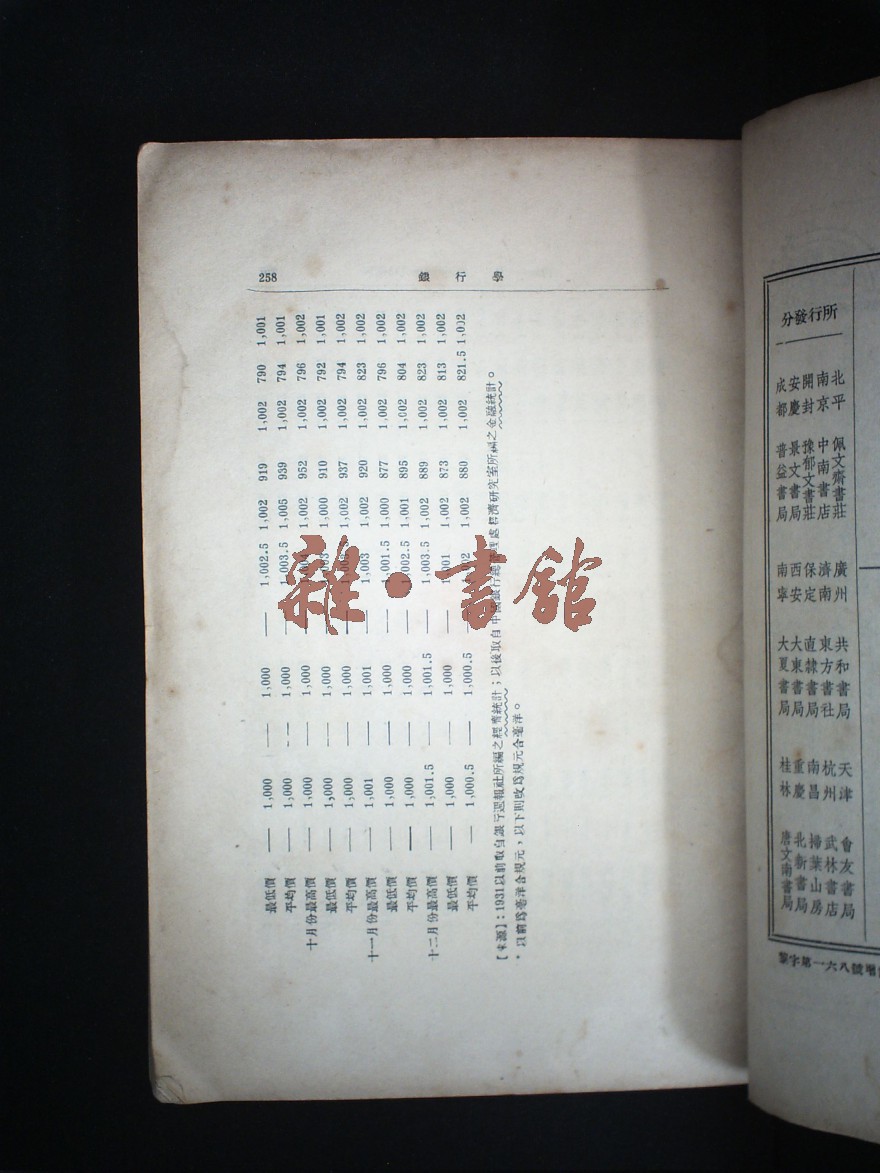 258
銀行學
最低價 — 1,000 — 1,000 — 1,002.5 1,002 919 1,002 790 1,001
平均價 — 1,000 — 1,000 — 1,003.5 1,005 939 1,002 794 1,001
十月份最高價 — 1,000 — 1,000 — 1,002 952 1,002 796 1,002
最低價 — 1,000 — 1,000 — 1,000 910 1,002 792 1,001
平均價 — 1,000 — 1,000 — 1,002 937 1,002 794 1,002
十一月份最高價 — 1,001 — 1,001 — 1,003 1,002 920 1,002 823 1,002
最低價 — 1,000 — 1,000 — 1,001.5 1,000 877 1,002 796 1,002
平均價 — 1,000 — 1,000 — 1,002.5 1,001 895 1,002 804 1,002
十二月份最高價 — 1,001.5 — 1,001.5 — 1,003.5 1,002 889 1,002 823 1,002
最低價 — 1,000 — 1,000 — 1,001 1,002 873 1,002 813 1,002
平均價 — 1,000.5 — 1,000.5 — 1,002 880 1,002 821.5 1,002
【來源】:1931以前取自銀行週報社所編之經濟統計;以後取自中國銀行總管理處經濟研究室所編之金融統計。
* 以前爲毫洋合規元,以下則改爲規元合毫洋。
雜·書館
分發行所
北平 佩文齋書莊 廣州 共和書局 天津 會友書局
南京 中南書店 濟南 東方書社 杭州 武林書店
開封 豫郁文書莊 保定 直隸書局 南昌 掃葉山房
安慶 景文書局 西安 大東書局 重慶 北新書局
成都 普益書局 南寧 大夏書局 桂林 唐文南書局
字第一六八號